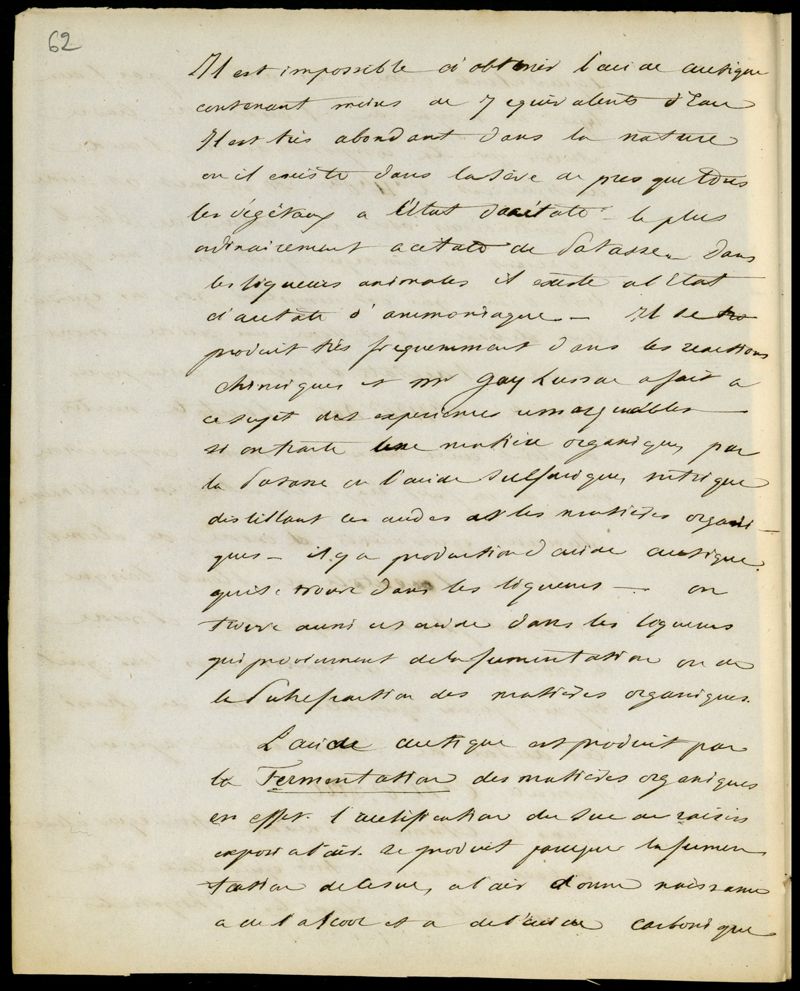 62
Il est impossible d'obtenir l'acide acetique
contenant moins de 7 equivalents d'Eau
Il est très abondant dans la nature
ou il existe dans la sève de presque tous
les végétaux a l'état d'acétate - le plus
ordinairement acetate de Potasse - dans
les liqueurs animales il existe a l'Etat
d'acetate d'ammoniaque - Il se
produit très frequemment dans les reactions
chimiques et mr Gay Lussac a fait a
ce sujet des experiences remarquables -
si on traite une matiere organique, par
la Potasse ou l'acide sulfurique, nitrique
distillant ces acides les matieres organi-
ques - il y a production d'acide acetique
qui se trouve dans les liqueurs - on
trouve aussi cet acide dans les liqueurs
qui proviennent de la fermentation ou de
la Putrefaction des matières organiques.
L'acide acetique est produit par
la Fermentation des matieres organiques
en effet. l'acetification du suc de raisins
exposé a l'air. se produit parceque la fermen
tation de ce suc, a l'air donne naissance
a de l'alcool et a de l'acide carbonique